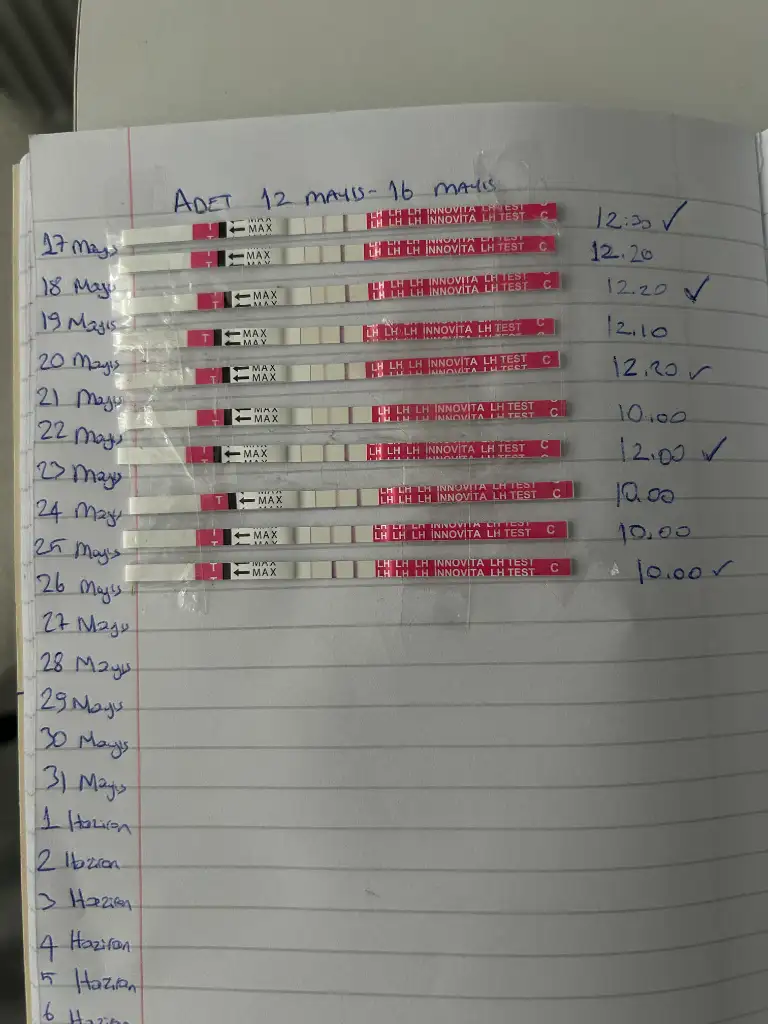 ADET 12 MAYIS - 16 MAYIS
17 Mayıs T MAX LH LH LH INNOVITA LH TEST C 12:30 ✓
18 Mayıs T MAX LH LH LH INNOVITA LH TEST C 12.20
19 Mayıs T MAX LH LH LH INNOVITA LH TEST C 12.20 ✓
20 Mayıs T MAX LH LH LH INNOVITA LH TEST C 12.10
21 Mayıs T MAX LH LH LH INNOVITA LH TEST C 12.20 ✓
22 Mayıs T MAX LH LH LH INNOVITA LH TEST C 10.00
23 Mayıs T MAX LH LH LH INNOVITA LH TEST C 12.00 ✓
24 Mayıs T MAX LH LH LH INNOVITA LH TEST C 10.00
25 Mayıs T MAX LH LH LH INNOVITA LH TEST C 10.00
26 Mayıs T MAX LH LH LH INNOVITA LH TEST C 10.00 ✓
27 Mayıs
28 Mayıs
29 Mayıs
30 Mayıs
31 Mayıs
1 Haziran
2 Haziran
3 Haziran
4 Haziran
5 Haziran
6 Haziran